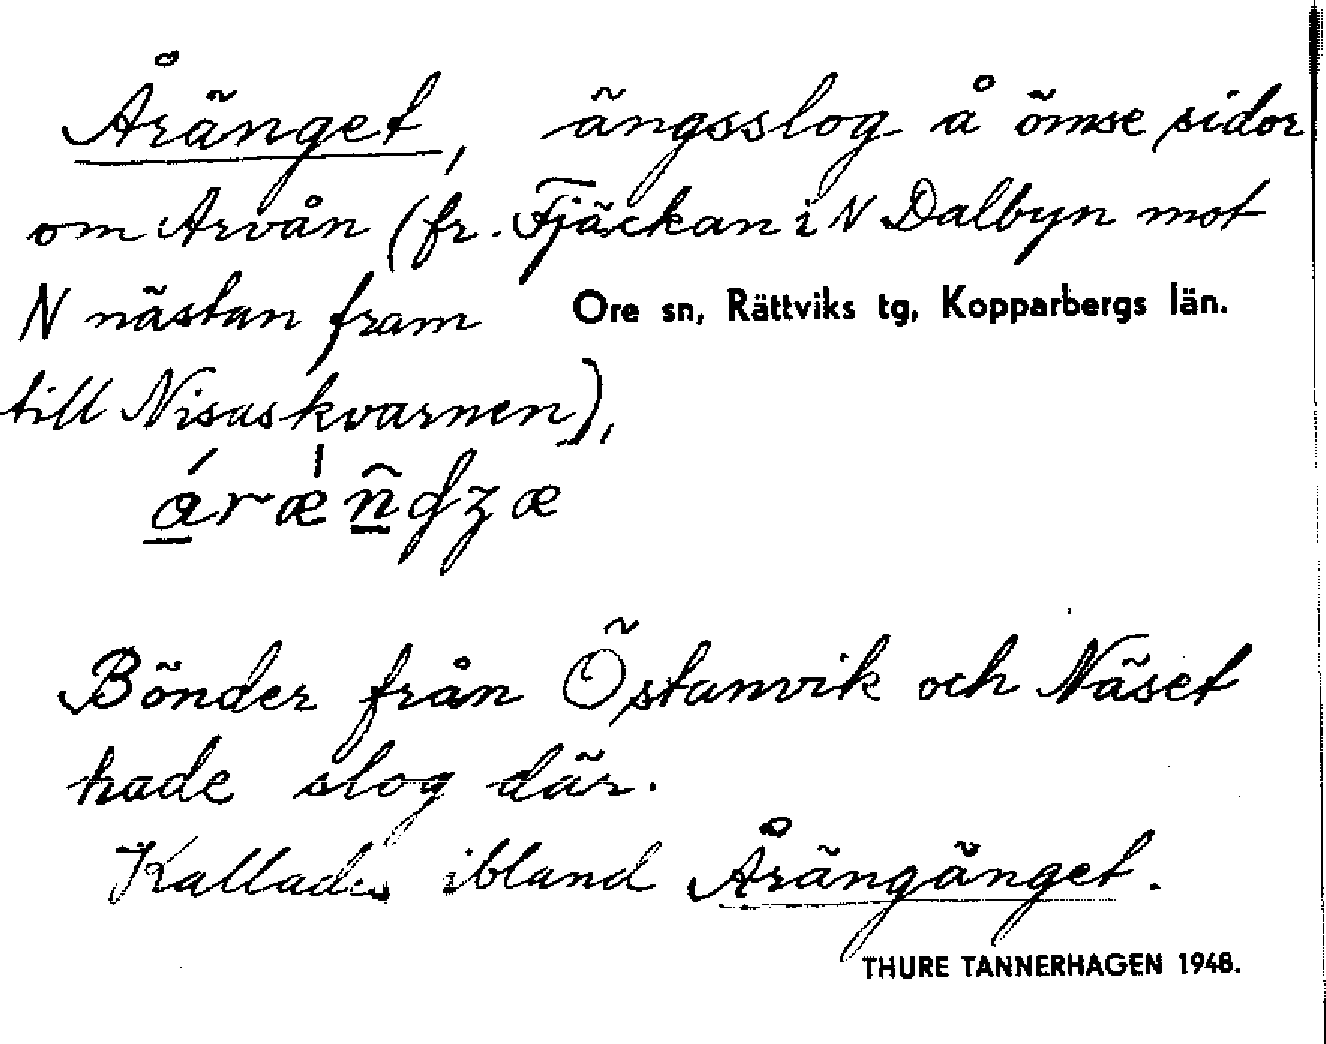 Åränget, ängsslog å ömse sidor
om Arvån (fr. Fjäckan i N Dalbyn mot
N nästan fram
Ore sn, Rättviks tg, Kopparbergs län.
till Nisaskvarnen),
Bönder från Östanvik och Näset
hade slog där.
Kallades ibland Årängänget.
THURE TANNERHAGEN 1948.